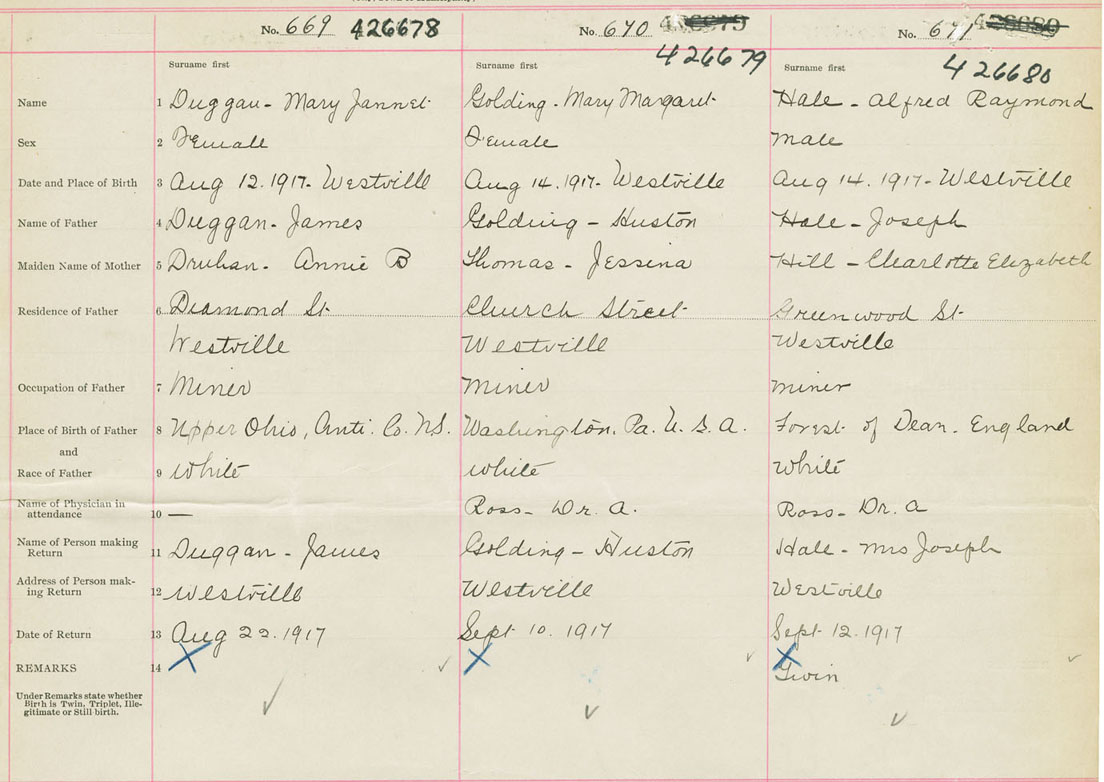 No. 669 426678 No. 670 426679 No. 671 426680
426679 426680
Surname first Surname first Surname first
Name 1 Duggan - Mary Jannet Golding - Mary Margaret Hale - Alfred Raymond
Sex 2 Female Female Male
Date and Place of Birth 3 Aug 12. 1917 - Westville Aug 14. 1917 - Westville Aug 14. 1917 - Westville
Name of Father 4 Duggan - James Golding - Huston Hale - Joseph
Maiden Name of Mother 5 Druhan - Annie B Thomas - Jessina Hill - Charlotte Elizabeth
Residence of Father 6 Diamond St Church Street Greenwood St
Westville Westville Westville
Occupation of Father 7 Miner Miner Miner
Place of Birth of Father 8 Upper Ohio, Anti. Co. N.S. Washington. Pa. U. S. A. Forest of Dean - England
and
Race of Father 9 White White White
Name of Physician in
attendance 10 — Ross - Dr. A. Ross - Dr. A
Name of Person making
Return 11 Duggan - James Golding - Huston Hale - Mrs Joseph
Address of Person mak-
ing Return 12 Westville Westville Westville
Date of Return 13 Aug 22. 1917 Sept 10. 1917 Sept 12. 1917
REMARKS 14 X X X
Twin
Under Remarks state whether
Birth is Twin, Triplet, Ille-
gitimate or Still-birth.